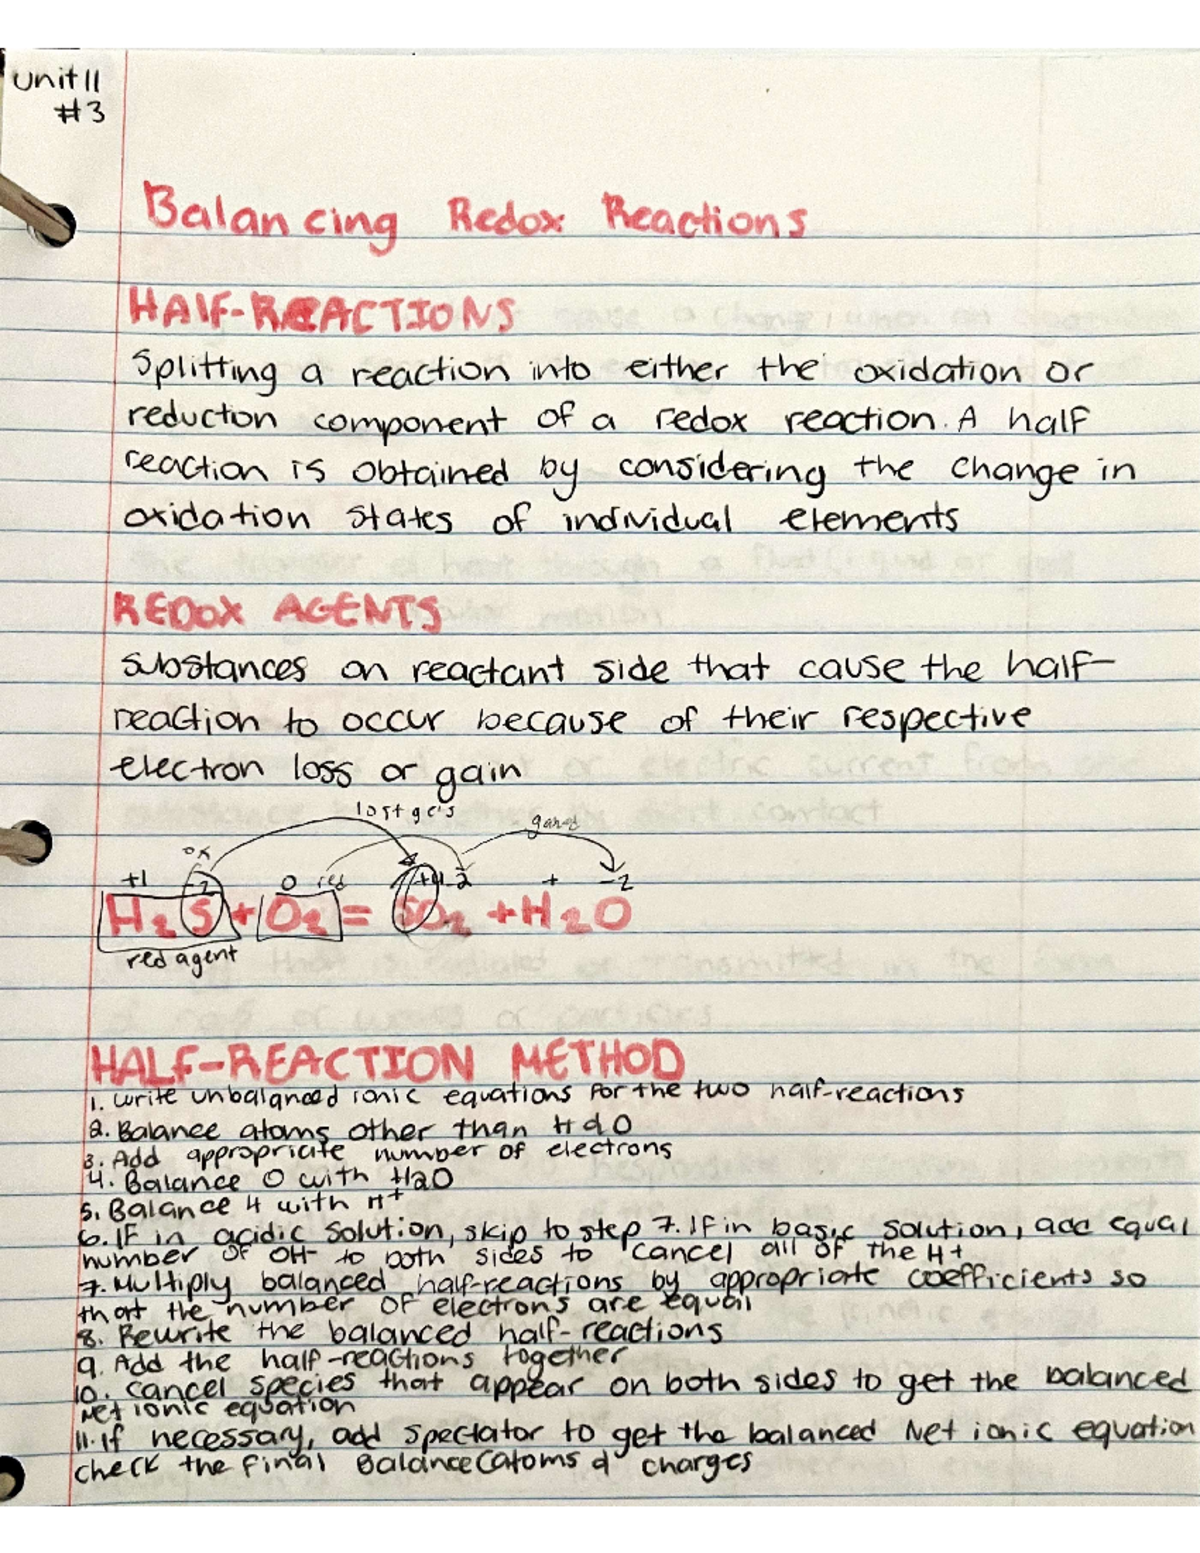 Unit 11
#3
Balancing Redox Reactions
HALF-REACTIONS
Splitting a reaction into either the oxidation or
reduction component of a redox reaction. A half
reaction is obtained by considering the change in
oxidation states of individual elements
REDOX AGENTS
Substances on reactant side that cause the half-
reaction to occur because of their respective
electron loss or gain
lost 8 e's gained
ox
+1 -2 0 red +4 -2 + -2
H2S + O2 = SO2 + H2O
red agent
HALF-REACTION METHOD
1. Write unbalanced ionic equations for the two half-reactions
2. Balance atoms other than H & O
3. Add appropriate number of electrons
4. Balance O with H2O
5. Balance H with H+
6. If in acidic solution, skip to step 7. If in basic solution, add equal
number of OH- to both sides to cancel all of the H+
7. Multiply balanced half-reactions by appropriate coefficients so
that the number of electrons are equal
8. Rewrite the balanced half-reactions
9. Add the half-reactions together
10. Cancel species that appear on both sides to get the balanced
Net ionic equation
11. If necessary, add spectator to get the balanced Net ionic equation
check the final Balance (atoms & charges